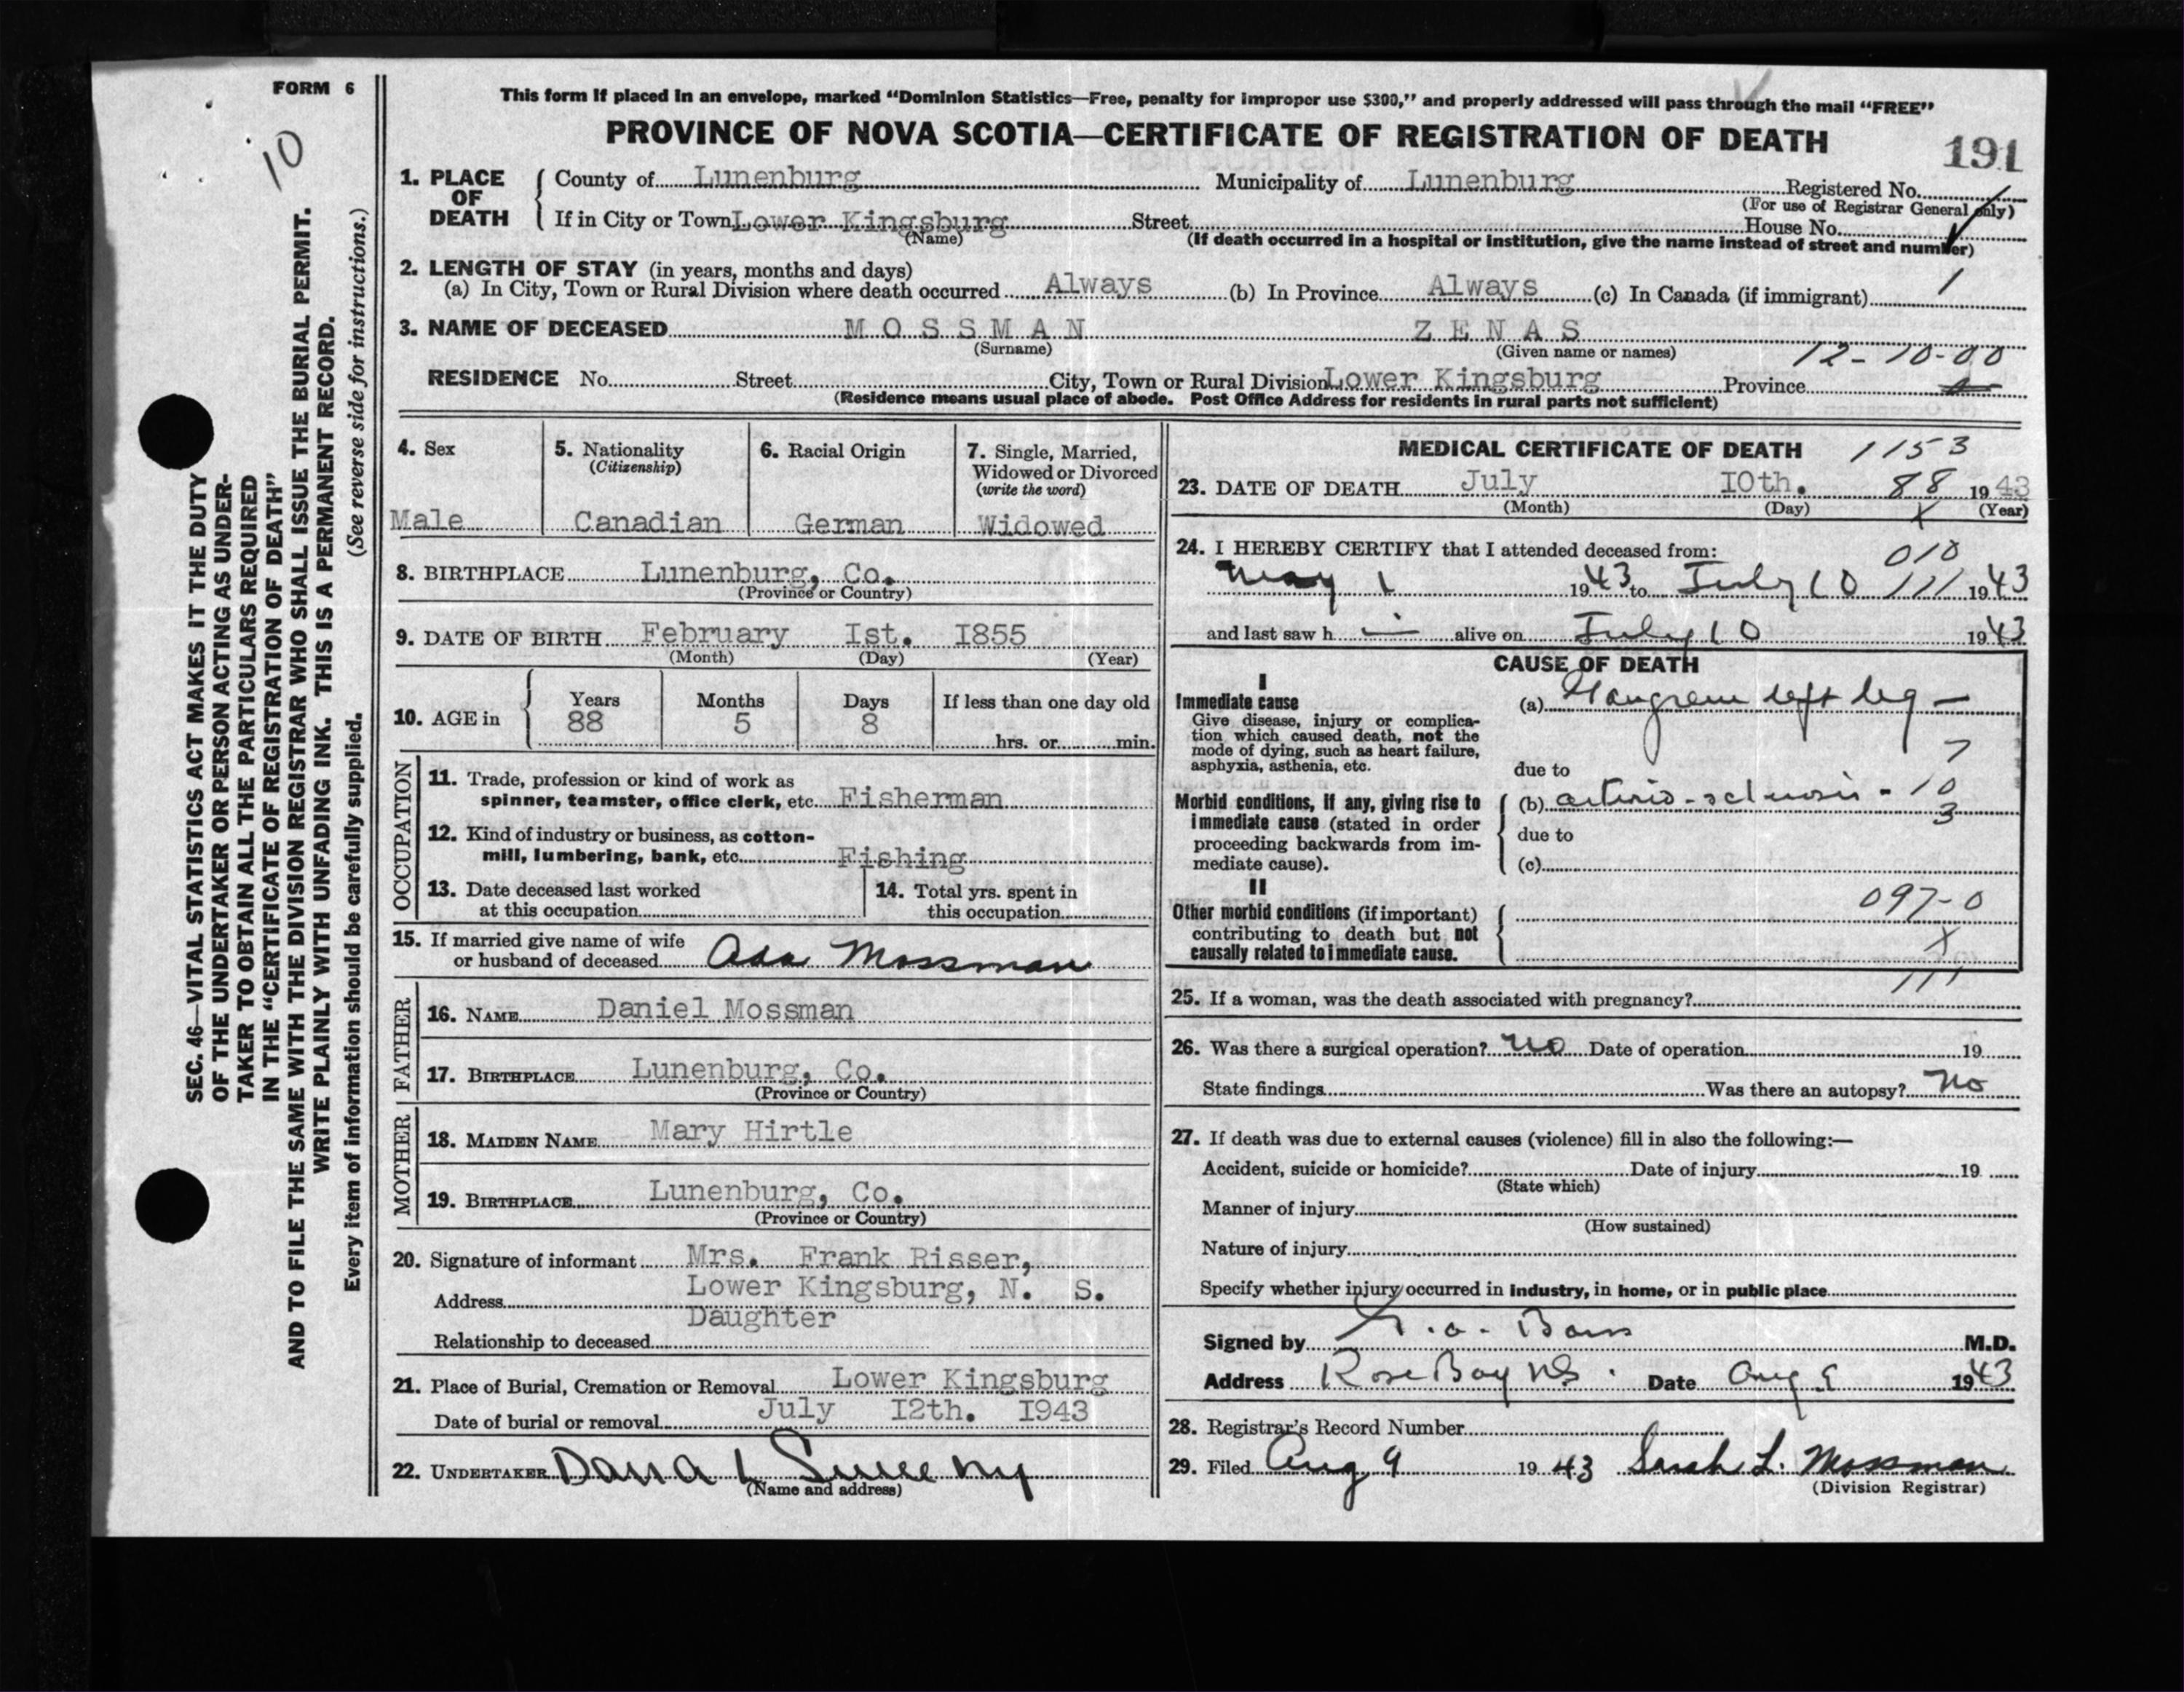 FORM 6
10
SEC. 46—VITAL STATISTICS ACT MAKES IT THE DUTY
OF THE UNDERTAKER OR PERSON ACTING AS UNDER-
TAKER TO OBTAIN ALL THE PARTICULARS REQUIRED
IN THE "CERTIFICATE OF REGISTRATION OF DEATH"
AND TO FILE THE SAME WITH THE DIVISION REGISTRAR WHO SHALL ISSUE THE BURIAL PERMIT.
WRITE PLAINLY WITH UNFADING INK. THIS IS A PERMANENT RECORD.
Every item of information should be carefully supplied. (See reverse side for instructions.)
This form if placed in an envelope, marked "Dominion Statistics—Free, penalty for improper use $300," and properly addressed will pass through the mail "FREE"
PROVINCE OF NOVA SCOTIA—CERTIFICATE OF REGISTRATION OF DEATH
191
1. PLACE OF DEATH
County of Lunenburg Municipality of Lunenburg Registered No.
(For use of Registrar General only)
If in City or Town Lower Kingsburg Street House No.
(Name) (If death occurred in a hospital or institution, give the name instead of street and number)
2. LENGTH OF STAY (in years, months and days)
(a) In City, Town or Rural Division where death occurred Always (b) In Province Always (c) In Canada (if immigrant) 1
3. NAME OF DECEASED MOSSMAN ZENAS
(Surname) (Given name or names) 12-10-00
RESIDENCE No. Street City, Town or Rural Division Lower Kingsburg Province
(Residence means usual place of abode. Post Office Address for residents in rural parts not sufficient)
4. Sex
Male
5. Nationality
(Citizenship)
Canadian
6. Racial Origin
German
7. Single, Married,
Widowed or Divorced
(write the word)
Widowed
8. BIRTHPLACE Lunenburg, Co.
(Province or Country)
9. DATE OF BIRTH February Ist. I855
(Month) (Day) (Year)
10. AGE in
Years Months Days If less than one day old
88 5 8
hrs. or min.
OCCUPATION
11. Trade, profession or kind of work as
spinner, teamster, office clerk, etc. Fisherman
12. Kind of industry or business, as cotton-
mill, lumbering, bank, etc. Fishing
13. Date deceased last worked
at this occupation
14. Total yrs. spent in
this occupation
15. If married give name of wife
or husband of deceased Ada Mossman
FATHER
16. NAME Daniel Mossman
17. BIRTHPLACE Lunenburg, Co.
(Province or Country)
MOTHER
18. MAIDEN NAME Mary Hirtle
19. BIRTHPLACE Lunenburg, Co.
(Province or Country)
20. Signature of informant Mrs. Frank Risser,
Address Lower Kingsburg, N. S.
Relationship to deceased Daughter
21. Place of Burial, Cremation or Removal Lower Kingsburg
Date of burial or removal July I2th. I943
22. UNDERTAKER Dana L Sweeny
(Name and address)
MEDICAL CERTIFICATE OF DEATH 1153
23. DATE OF DEATH July I0th. 88 19 43
(Month) (Day) X (Year)
24. I HEREBY CERTIFY that I attended deceased from: 010
May 1 1943 to July 10 111 1943
and last saw h i alive on July 10 1943
CAUSE OF DEATH
I
Immediate cause
Give disease, injury or complica-
tion which caused death, not the
mode of dying, such as heart failure,
asphyxia, asthenia, etc.
(a) Gangrene left leg —
7
due to
Morbid conditions, if any, giving rise to
immediate cause (stated in order
proceeding backwards from im-
mediate cause).
(b) arterio-sclerosis - 10
3
due to
(c)
II
Other morbid conditions (if important)
contributing to death but not
causally related to immediate cause.
097-0
X
111
25. If a woman, was the death associated with pregnancy?
26. Was there a surgical operation? no Date of operation 19
State findings Was there an autopsy? no
27. If death was due to external causes (violence) fill in also the following:—
Accident, suicide or homicide? Date of injury 19
(State which)
Manner of injury
(How sustained)
Nature of injury
Specify whether injury occurred in industry, in home, or in public place
Signed by M.D.
Address Rose Bay NS. Date Aug 9 1943
28. Registrar's Record Number
29. Filed Aug 9 19 43 Sarah L. Mossman
(Division Registrar)